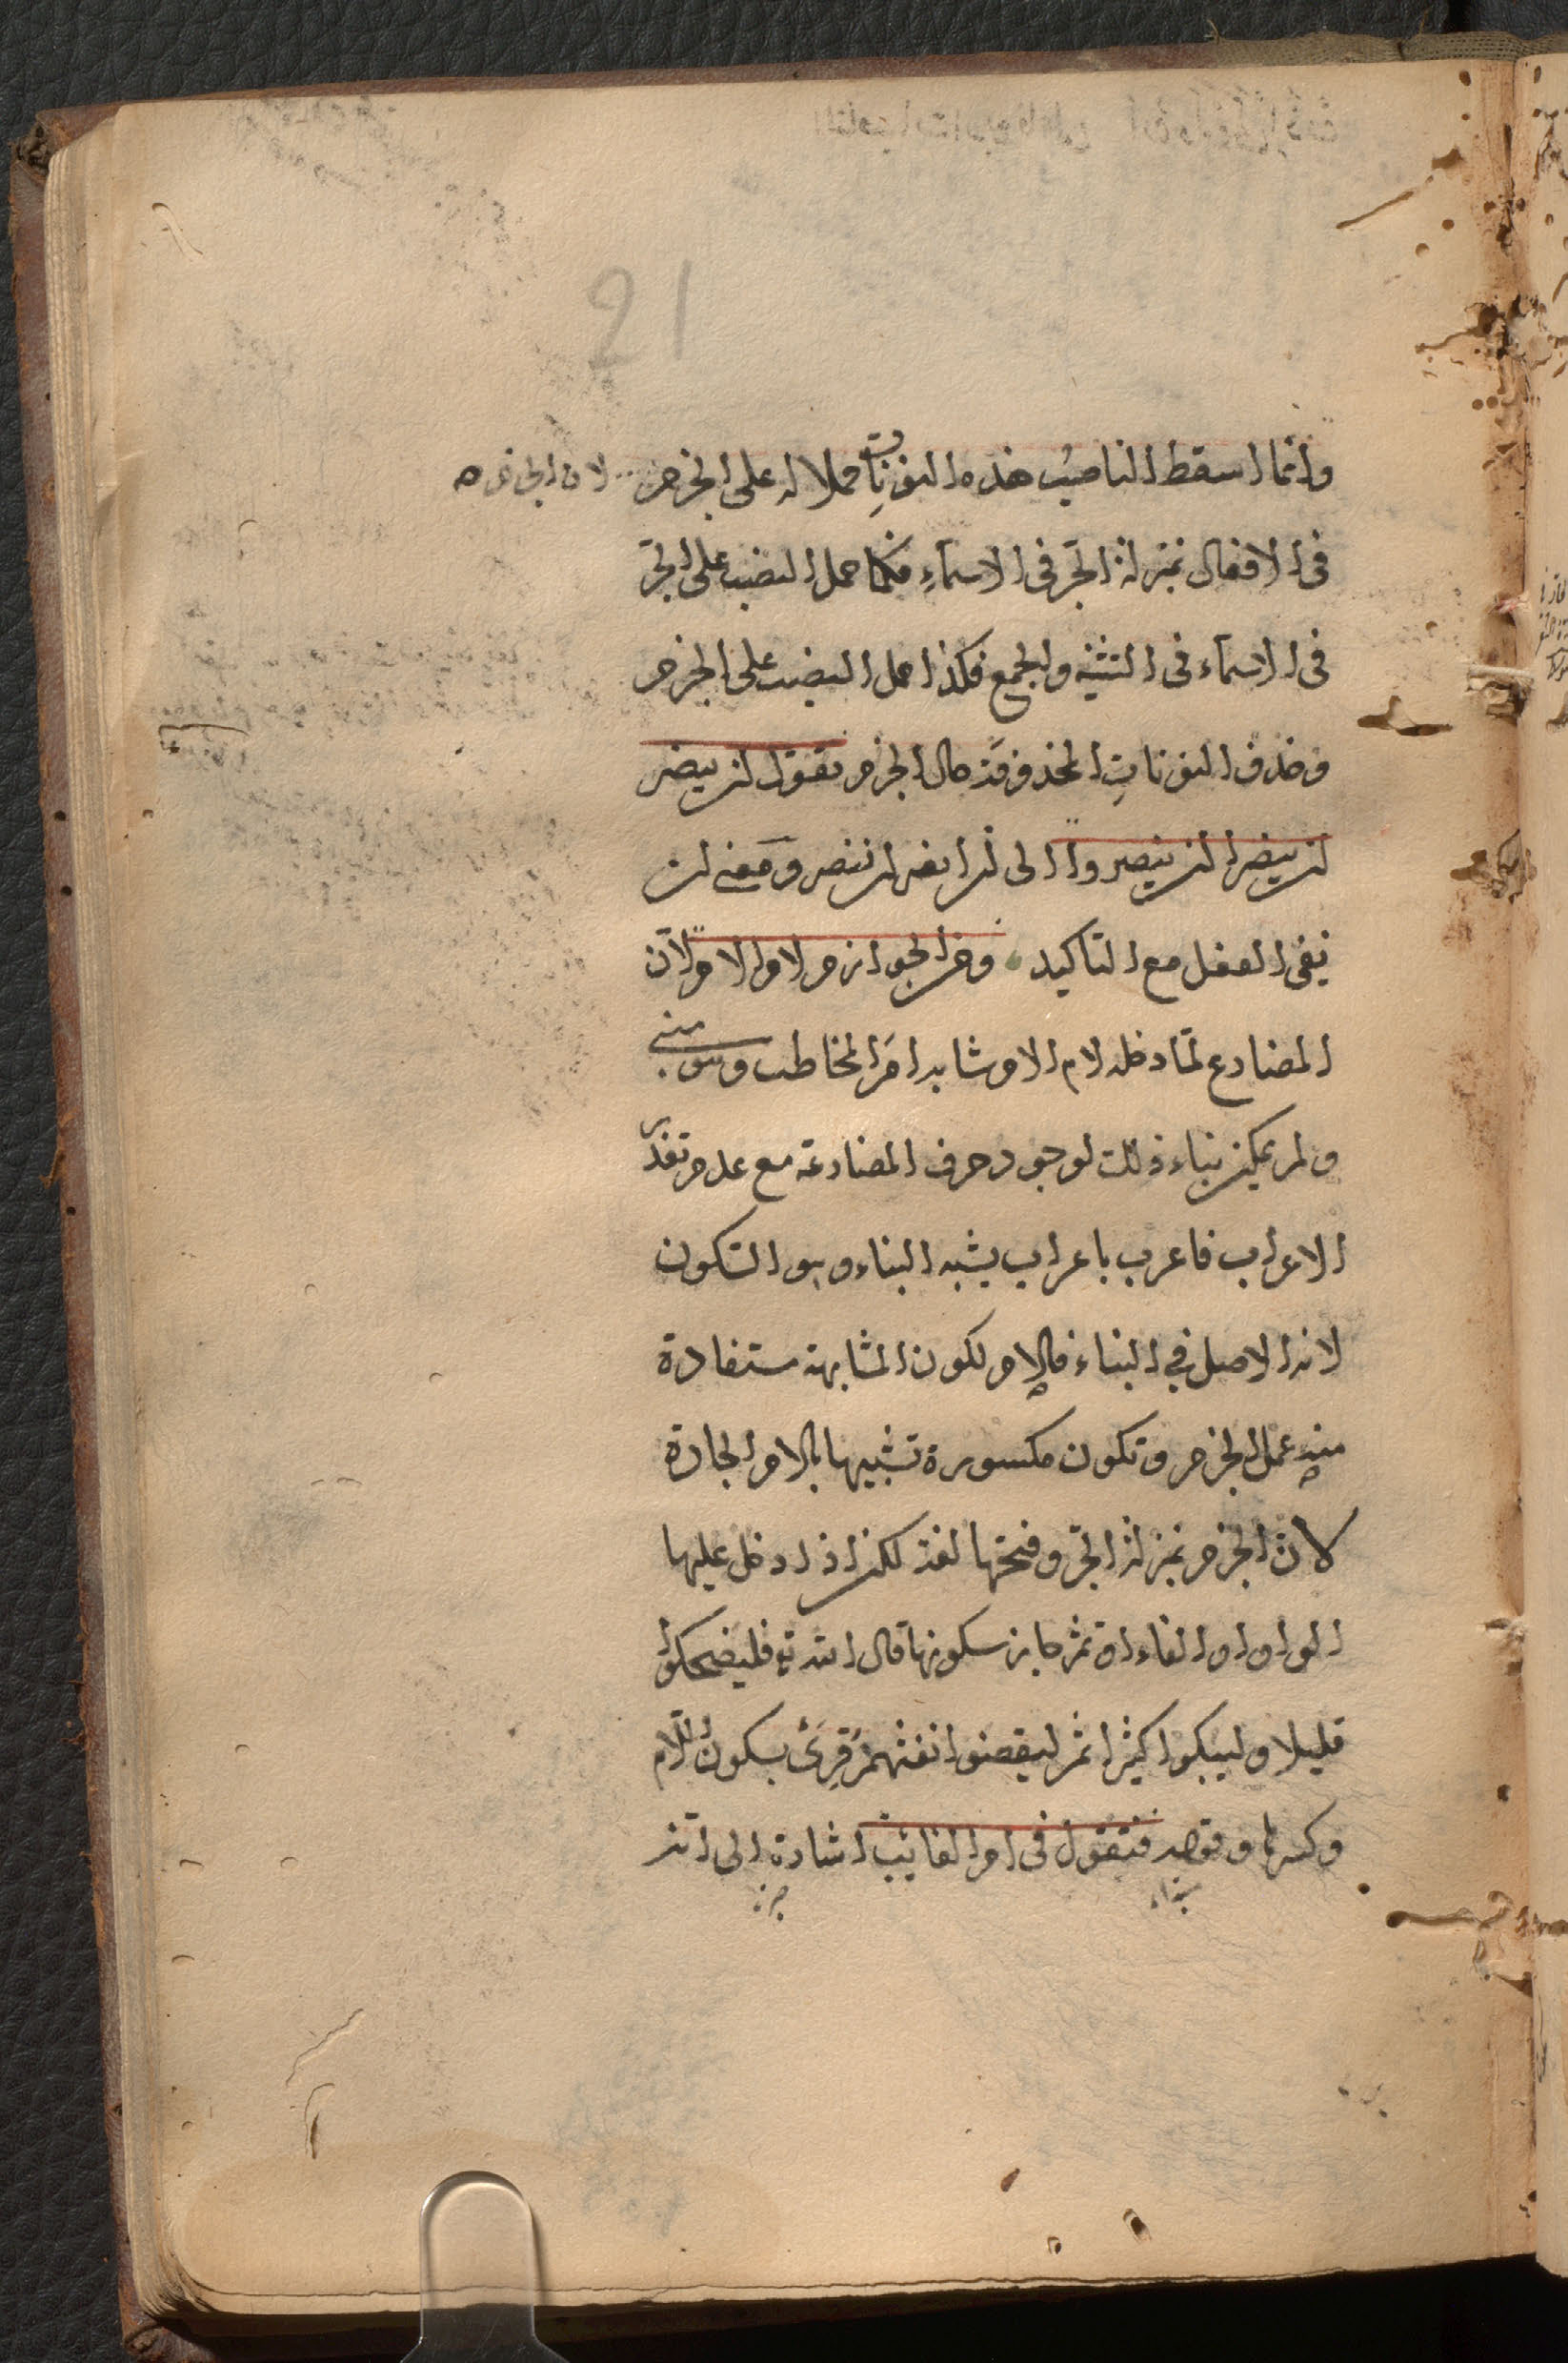 وانما اسقط الناصب هذه النونات حملا له على الجزم لان الجزم
فى الافعال بمنزلة الجر فى الاسماء فكما حمل النصب على الجر
فى الاسماء فى التثنيه والجمع فكذا حمل النصب على الجزم
وحذف النونات المحذوفة حال الجزم تقول لن ينصر
لن ينصرا لن ينصروا الى لن انصر لن ننصر ومعنى لن
نفى الفعل مع التاكيد ومن الجوازم لام الامر لان
المضارع لما دخله لام الامر شابه امر المخاطب وهو مبنى
ولم يمكن بناء ذلك لوجود حرف المضارعة مع عدم تعذر
الاعراب فاعرب باعراب يشبه البناء وهو السكون
لانه الاصل فى البناء فاللام لكون المشابهة مستفادة
منه عمل الجزم وتكون مكسورة تشبيها باللام الجارة
لان الجزم بمنزلة الجر وفتحها لغة لكن اذا دخل عليها
الواو او الفاء او ثم جاز سكونها قال الله تع فليضحكوا
قليلا وليبكوا كثيرا ثم ليقضوا تفثهم قرئ بسكون اللام
وكسرها وقوله فتقول فى امر الغائب اشارة الى انه